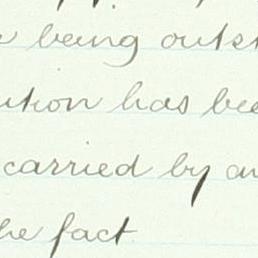 being outst
ution has bee
carried by an
he fact